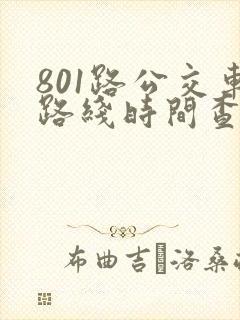 801路公交車
路綫時間查
布曲吉 洛桑